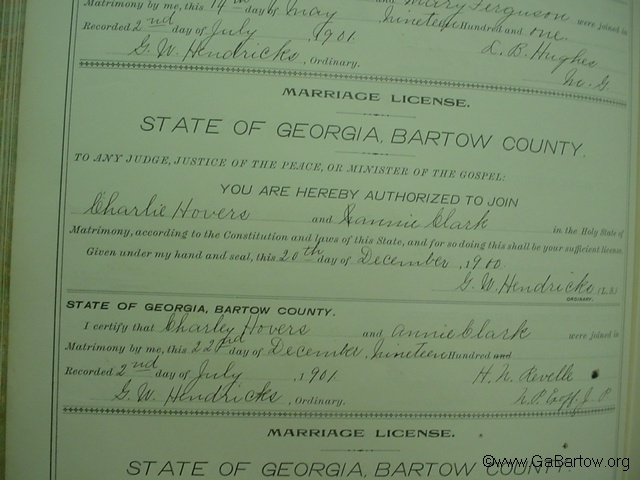 Matrimony by me, this 14th day of May Nineteen Hundred and one.
and Mary Ferguson were joined in
Recorded 2nd day of July, 1901. L. B. Hughes
G. W. Hendricks, Ordinary. M. G.
MARRIAGE LICENSE.
STATE OF GEORGIA, BARTOW COUNTY.
TO ANY JUDGE, JUSTICE OF THE PEACE, OR MINISTER OF THE GOSPEL:
YOU ARE HEREBY AUTHORIZED TO JOIN
Charlie Hovers and Annie Clark in the Holy State of
Matrimony, according to the Constitution and laws of this State, and for so doing this shall be your sufficient license.
Given under my hand and seal, this 20th day of December, 1900.
G. W. Hendricks (L. S.)
ORDINARY.
STATE OF GEORGIA, BARTOW COUNTY.
I certify that Charley Hovers and Annie Clark were joined in
Matrimony by me, this 22nd day of December, Nineteen Hundred and
Recorded 2nd day of July, 1901. H. N. Revelle
G. W. Hendricks, Ordinary. J. P.
MARRIAGE LICENSE.
STATE OF GEORGIA, BARTOW COUNTY.
©www.GaBartow.org